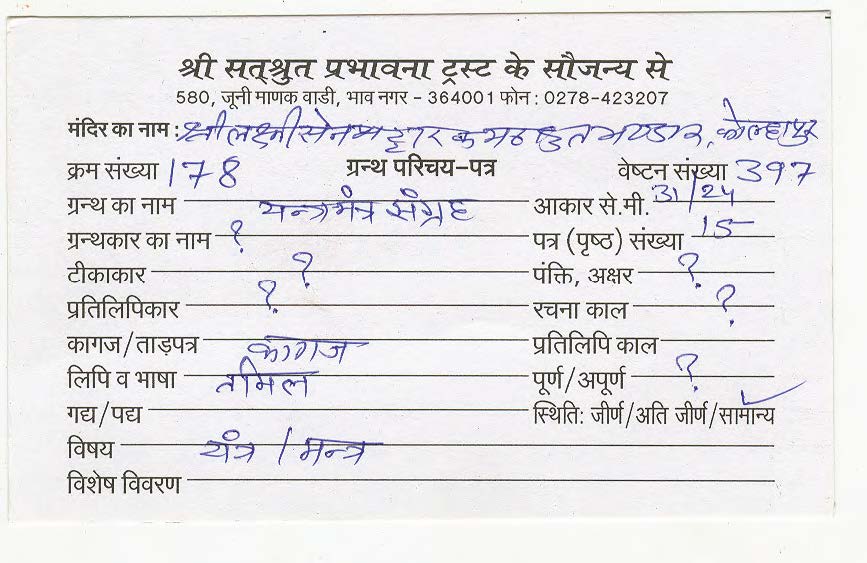 श्री सत्श्रुत प्रभावना ट्रस्ट के सौजन्य से
580, जूनी माणक वाडी, भाव नगर - 364001 फोन : 0278-423207
मंदिर का नाम : श्री लक्ष्मीसेन भट्टारक मठ श्रुत भण्डार, कोल्हापुर
क्रम संख्या 178 ग्रन्थ परिचय-पत्र वेष्टन संख्या 397
ग्रन्थ का नाम यन्त्रमंत्र संग्रह आकार से.मी. 31/24
ग्रन्थकार का नाम ? पत्र (पृष्ठ) संख्या 15
टीकाकार ? पंक्ति, अक्षर ?
प्रतिलिपिकार ? रचना काल ?
कागज/ताड़पत्र कागज प्रतिलिपि काल
लिपि व भाषा तमिल पूर्ण/अपूर्ण ?
गद्य/पद्य स्थिति: जीर्ण/अति जीर्ण/सामान्य
विषय यंत्र / मन्त्र
विशेष विवरण